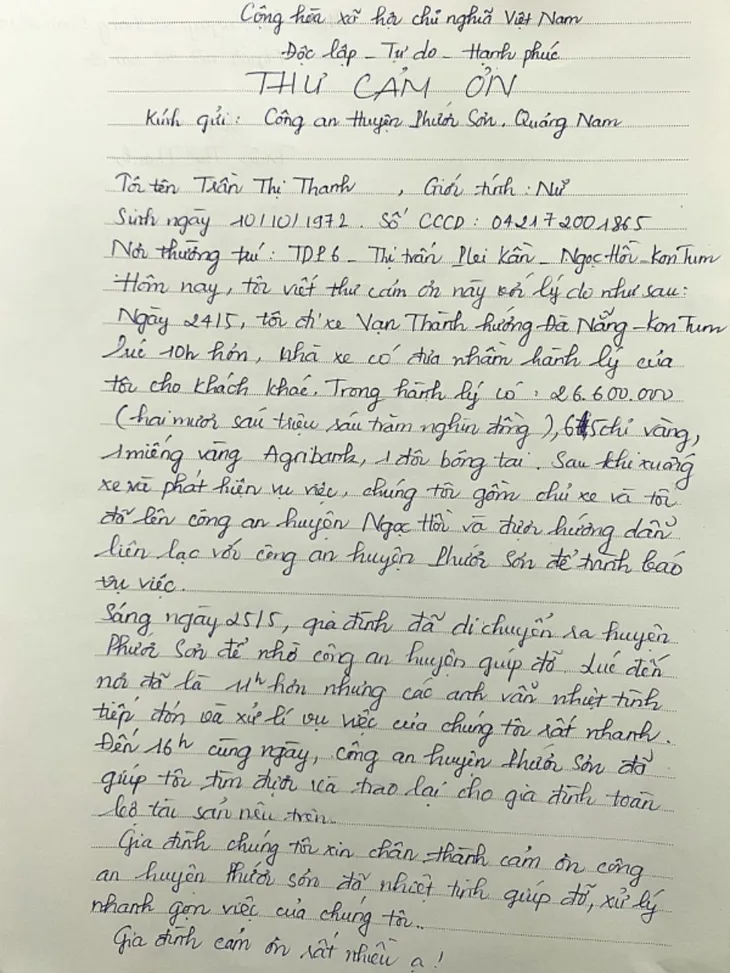 Cộng hòa xã hội chủ nghĩa Việt Nam
Độc lập - Tự do - Hạnh phúc
THƯ CẢM ƠN
Kính gửi: Công an Huyện Phước Sơn, Quảng Nam
Tôi tên Trần Thị Thanh , Giới tính: Nữ
Sinh ngày 10/10/1972. Số CCCD: 042172001865
Nơi thường trú: TDP6 - Thị trấn Plei Kần - Ngọc Hồi - Kon Tum
Hôm nay, tôi viết thư cảm ơn này với lý do như sau:
Ngày 24/5, tôi đi xe Vạn Thành hướng Đà Nẵng - Kon Tum
lúc 10h hơn, nhà xe có đưa nhầm hành lý của
tôi cho khách khác. Trong hành lý có: 26.600.000
(hai mươi sáu triệu sáu trăm nghìn đồng), 5 chỉ vàng,
1 miếng vàng Agribank, 1 đôi bông tai. Sau khi xuống
xe và phát hiện vụ việc, chúng tôi gồm chủ xe và tôi
đã lên công an huyện Ngọc Hồi và được hướng dẫn
liên lạc với công an huyện Phước Sơn để trình báo
vụ việc.
Sáng ngày 25/5, gia đình đã di chuyển ra huyện
Phước Sơn để nhờ công an huyện giúp đỡ. Lúc đến
nơi đã là 11h hơn nhưng các anh vẫn nhiệt tình
tiếp đón và xử lí vụ việc của chúng tôi rất nhanh.
Đến 16h cùng ngày, công an huyện Phước Sơn đã
giúp tôi tìm được và trao lại cho gia đình toàn
bộ tài sản nêu trên.
Gia đình chúng tôi xin chân thành cảm ơn công
an huyện Phước Sơn đã nhiệt tình giúp đỡ, xử lý
nhanh gọn việc của chúng tôi..
Gia đình cảm ơn rất nhiều ạ!